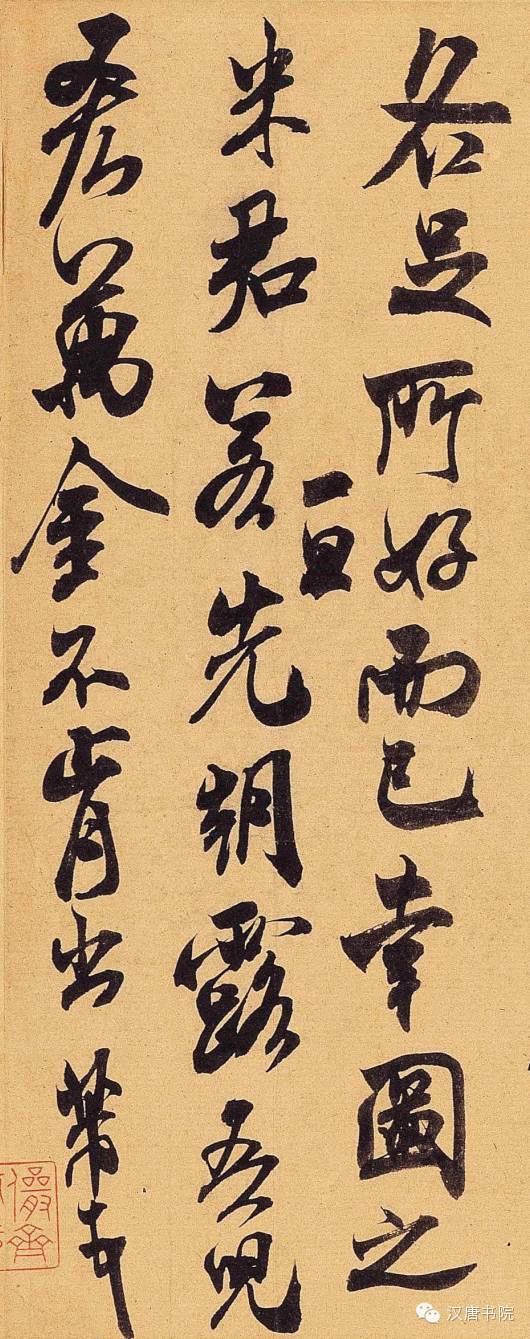 各足所好而已幸圖之
米君若一旦先朝露吾兒
吝萬金不肯出 芾
儼齋
汉唐书院